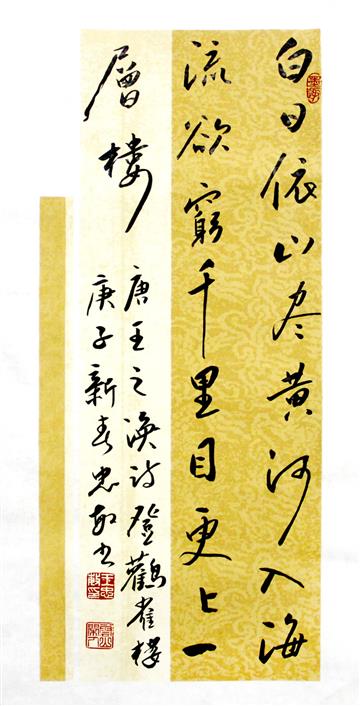 白日依山尽黄河入海
流欲穷千里目更上一
层楼
唐王之涣诗登鹳雀楼
庚子新春忠敏书